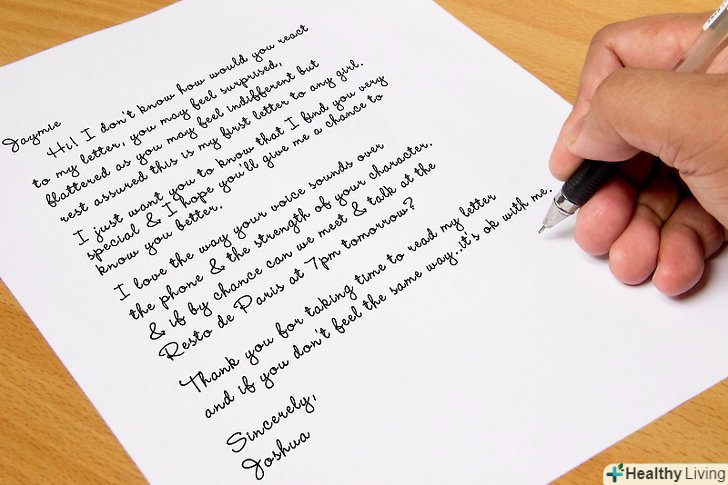 Jaymie
Hi! I don't know how would you react
to my letter, you may feel surprised,
flattered as you may feel indifferent but
rest assured this is my first letter to any girl.
I just want you to know that I find you very
special & I hope you'll give me a chance to
know you better.
I love the way your voice sounds over
the phone & the strength of your character.
& if by chance can we meet & talk at the
Resto de Paris at 7pm tomorrow?
Thank you for taking time to read my letter
and if you don't feel the same way..it's ok with me.
Sincerely,
Joshua
Healthy Living